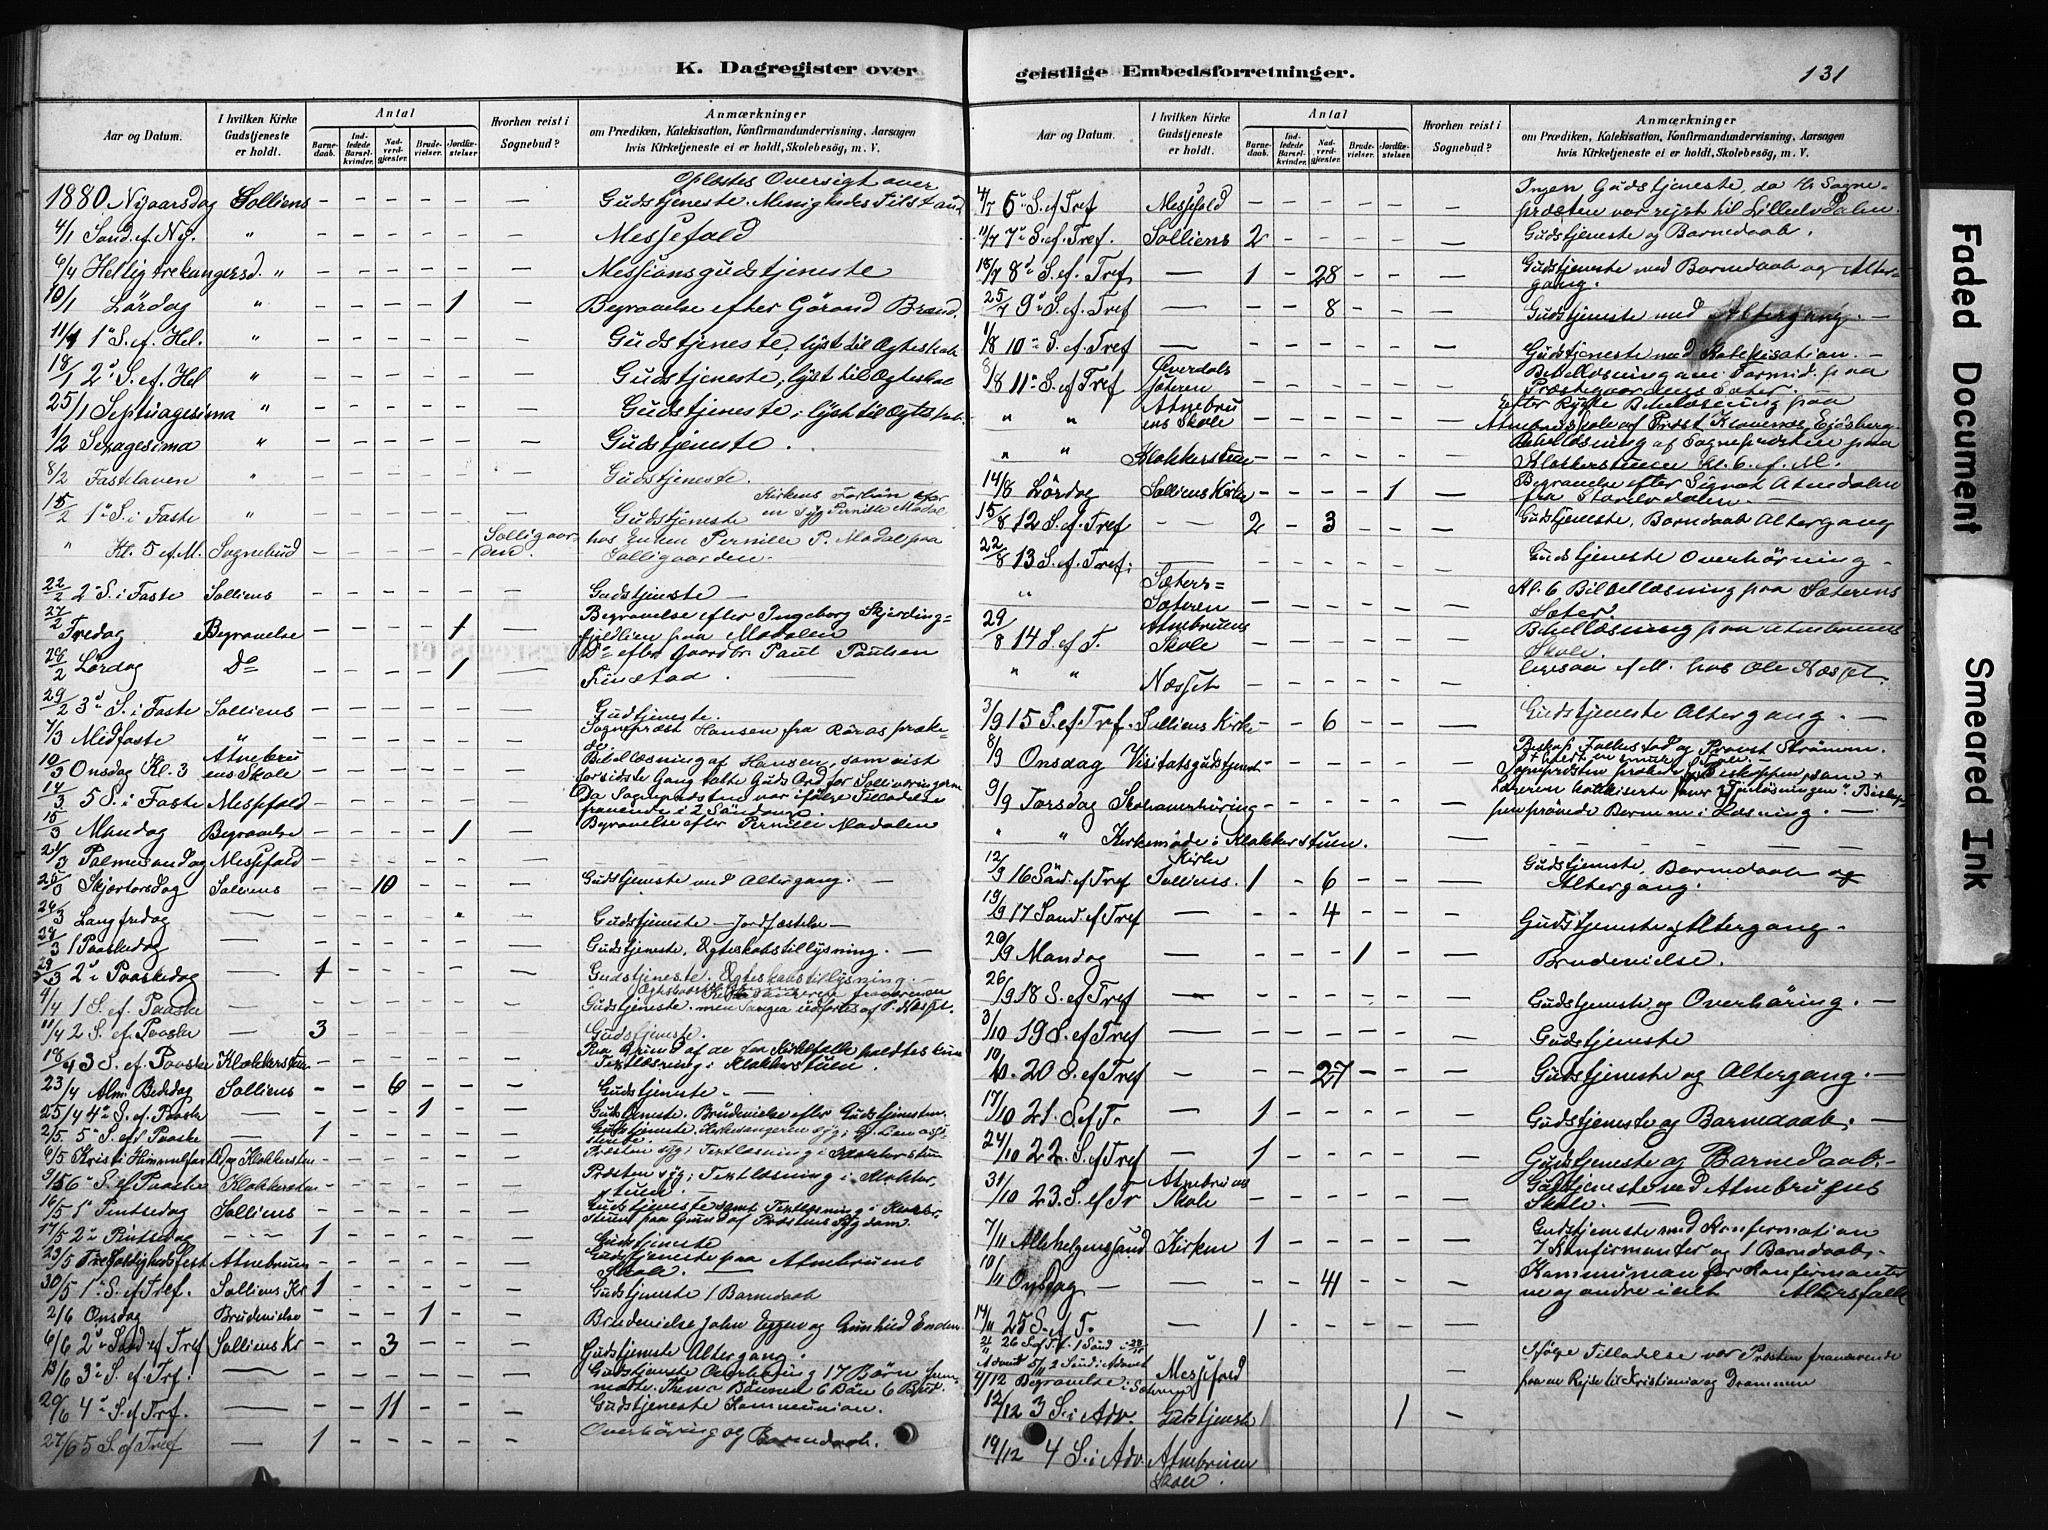 K. Dagregister over
Aar og Datum.
I hvilken Kirke Gudstjeneste er holdt.
Antal
Barne-daab.
Ind-ledede Barsel-kvinder.
Nad-verd-gjester.
Brude-vielser.
Jordfæ-stelser
Hvorhen reist i Sognebud?
Anmærkninger
om Prædiken, Katekisation, Konfirmandundervisning, Aarsagen
hvis Kirketjeneste ei er holdt, Skolebesög, m. V.
1880 Nyaarsdag Solliens - - - - - - Oplæstes Oversigt over
Gudstjeneste. Menighedes Tilstand
4/1 Sønd. ef. Ny. " - - - - - - Messefald
6/1 Hellig trekongersd. " - - - - - - Messionsgudstjeneste
10/1 Lördag " - - - - 1 - Begravelse efter Görand Brænd.
11/1 1ste S. ef. Hel. " - - - - - - Gudstjeneste, lyst til Ægteskab
18/1 2d S. ef. Hel " - - - - - - Gudstjeneste, lyst til Ægteskab
25/1 Septuagesima " - - - - - - Gudstjeneste, lyst til Ægteskab.
1/2 Sexagesima " - - - - - - Gudstjeneste.
8/2 Fastelaven " - - - - - - Gudstjeneste.
15/2 1ste S. i Faste " - - - - - - Gudstjeneste Kirkens Forbön for
en syg Pernille Modal
" Kl. 5 ef. M. Sognebud - - - - - Solligaarden hos Enken Pernille P. Modal paa
Solligaarden.
22/2 2d S. i Faste Solliens - - - - - - Gudstjeneste -
27/2 Fredag Begravelse - - - - 1 - Begravelse efter Ingeborg Skjerding-
fjedlien paa Modalen
28/2 Lördag Do - - - - 1 - Do efter Gaardbr. Paul Paulsen
Finstad.
29/2 3d S. i Faste Solliens - - - - - - Gudtjeneste.
7/3 Midfaste " - - - - - - Sognepræst Hansen fra Röraas præke-
de.
10/3 Onsdag Kl. 3 Atnebruens Skole - - - - - - Bibellæsning af Hansen, som vist
for sidste Gang talte Guds Ord for Sollieringerne
14/3 5 S. i Faste Messefald - - - - - - Da Sognepræsten var ifölge Tilladelse
fraværende i 2 Söndage.
15/3 Mandag Begravelse - - - - 1 - Begravelse efter Pernille Modalen
21/3 Palmesøndag Messefald - - - - - -
25/3 Skjærtorsdag Solliens - - 10 - - - Gudstjeneste med Altergang. -
26/3 Langfredag - - - - - - Gudstjeneste - Jordfæstelse -
28/3 1 Paaskedag - - - - - - Gudstjeneste, Ægteskabstillysning. -
29/3 2d Paaskedag - 1 - - - - - Gudstjeneste. Ægteskabstillysning. -
4/4 1 S. ef. Paaske - - - - - - Gudstjeneste. men Sangen udförtes af P. Næset.
11/4 2 S. ef. Paaske - 3 - - - - - Gudstjeneste.
18/4 3 S. ef. Paaske Klokkerstuen - - - - - - Paa Grund af de faa Kirkefolk holdtes kun
Textlæsning i Klokkerstuen.
23/4 Alm. Bededag Solliens - - 6 - - - Gudstjeneste -
25/4 4de S. ef. Paaske - - - 1 - - Gudstjeneste. Brudevielse efter Gudstjenesten.
2/5 5te S. ef. Paaske - 1 - - - - - Gudstjeneste. Kirkesangeren syg;
6/5 Kristi Himmelfart Klokkerstuen - - - - - - Præsten syg; Textlæsning i Klokkerstuen
9/5 6te S. ef Paaske Klokkerstuen - - - - - - Præsten syg; Textlæsning i Klokker-
stuen.
16/5 1ste Pintsedag Solliens - - - - - - Gudstjeneste samt Textlæsning i Klokker-
stuen paa Grund af Præstens Sygdom.
17/5 2d Pintsedag - 1 - - - - - Gudstjeneste
23/5 Trefoldighedsfest Atnebruen - - - - - - Gudstjeneste paa Atnebruens
Skole. -
30/5 1ste S. ef Tref. Solliens Kr 1 - - - - - Gudstjeneste 1 Barnedaab
2/6 Onsdag Brudevielse - - - 1 - - Brudevielse John Eggen og Gunhild Enden
6/6 2d Sönd ef Tref Solliens Kr - - 3 - - - Gudstjeneste Altergang.
13/6 3d S. ef. Trf. - - - - - - Gudstjeneste Overhöring 17 Börn frem-
mötte. Thema Bönnen
20/6 4de S. ef Trf. - - 11 - - - Gudstjeneste Kommunion.
27/6 5 S. ef Tref - 1 - - - - - Overhöring og Barnedaab.
geistlige Embedsforretninger.
131
Aar og Datum.
I hvilken Kirke Gudstjeneste er holdt.
Antal
Barne-daab.
Ind-ledede Barsel-kvinder.
Nad-verd-gjester.
Brude-vielser.
Jordfæ-stelser.
Hvorhen reist i Sognebud?
Anmærkninger
om Prædiken, Katekisation, Konfirmandundervisning, Aarsagen
hvis Kirketjeneste ei er holdt, Skolebesög, m. V.
4/7 6te S. ef Tref Messefald - - - - - - Ingen Gudstjeneste, da Hr Sogne-
præsten var rejst til Lilleelvdalen.
11/7 7de S. ef. Tref. Solliens 2 - - - - - Gudstjeneste og Barnedaab.
18/7 8de S. ef. Tref - 1 - 28 - - - Gudstjeneste med Barnedaab og Alter-
gang.
25/7 9de S. ef. Tref - - - 8 - - - Gudstjeneste med Altergang. -
1/8 10de S. ef. Tref - - - - - - Gudstjeneste med Katekisation. -
8/8 11te S. ef Tref Øverdals Sæteren - - - - - - Bibellæsning om Formid. paa
Præstegaardens Sæter -
" " Atnebruens Skole - - - - - - Efter Rygte Bibellæsning paa
Atnebruskole af Prost Klavenes, Eidsberg.
" " Klokkerstuen - - - - - - Bibellæsning af Sognepræsten paa
Klokkerstuen Kl. 6. ef. M.
14/8 Lördag Solliens Kirke - - - - 1 - Begravelse efter Signot Atnedalen
fra Storelvdalen -
15/8 12 S. ef Tref - 2 - 3 - - - Gudstjeneste, Barndaab Altergang
22/8 13 S. ef. Tref: - - - - - - Gudstjeneste Overhörning -
" Sæters=Sæteren - - - - - - Kl. 6 Bibellæsning paa Sæterens
Sæter.
29/8 14 S. ef T. Atnebruens Skole - - - - - - Bibellæsning paa Atnebruens
Skole.
" " Næsset - - - - - - ligesaa ef M. hos Ole Næsset.
5/9 15 S. ef Tref. Solliens Kirke - - 6 - - - Gudstjeneste Altergang. -
8/9 Onsdag Visitatsgudstjenest - - - - - - Biskop Folkestad og Provst Strömm.
9/9 Torsdag Skoleoverhöring - - - - - -
pen prövede Bernene i Læsning. -
" " Kirkemöde i Klokkerstuen. -
12/9 16 Sön. ef Tref Solliens Kirke. 1 - 6 - - - Gudstjeneste, Barnedaab og
Altergang.
19/9 17 Sönd. ef Tref - - - 4 - - - Gudstjeneste og Altergang.
20/9 Mandag - - - - 1 - - Brudevielse.
26/9 18 S. ef Tref - - - - - - Gudstjeneste og Overhöring. -
3/10 19 S. ef Tref - - - - - - Gudstjeneste
10/10. 20 S. ef Tref - - - 27 - - - Gudstjeneste og Altergang. -
17/10 21. S. ef T. - 1 - - - - - Gudstjeneste og Barnedaab. -
24/10 22. S. ef Tref - 1 - - - - - Gudstjeneste og Barnedaab. -
31/10 23. S. ef Tr Atnebruens Skole - - - - - - Gudstjeneste ved Atnebrugens
Skole. -
7/11 Allehelgenssönd Kirken 1 - - - - - Gudstjeneste med Konfirmation
7 Konfirmanter og 1 Barndaab-
10/11 Onsdag - - - 41 - - - Kommunion for Konfirmanter
ne og andre i eit Altersfolk
14/11 25 S. ef T. 1 - - - - -
21/11 26 S. ef T. 1 Sönd i 28/11
Advent 5/12 2 Sönd i Advent Messefald Ifölge Tilladelse var Præsten fraværende
4/12 Begravelse i Sollien paa en Rejse til Kristiania og Drammen
12/12 3 S. i Adv. Gutstjenst 1 1 -
19/12 4 S. i Adv Atnebruen Skole.
Faded Document
Smeared Ink